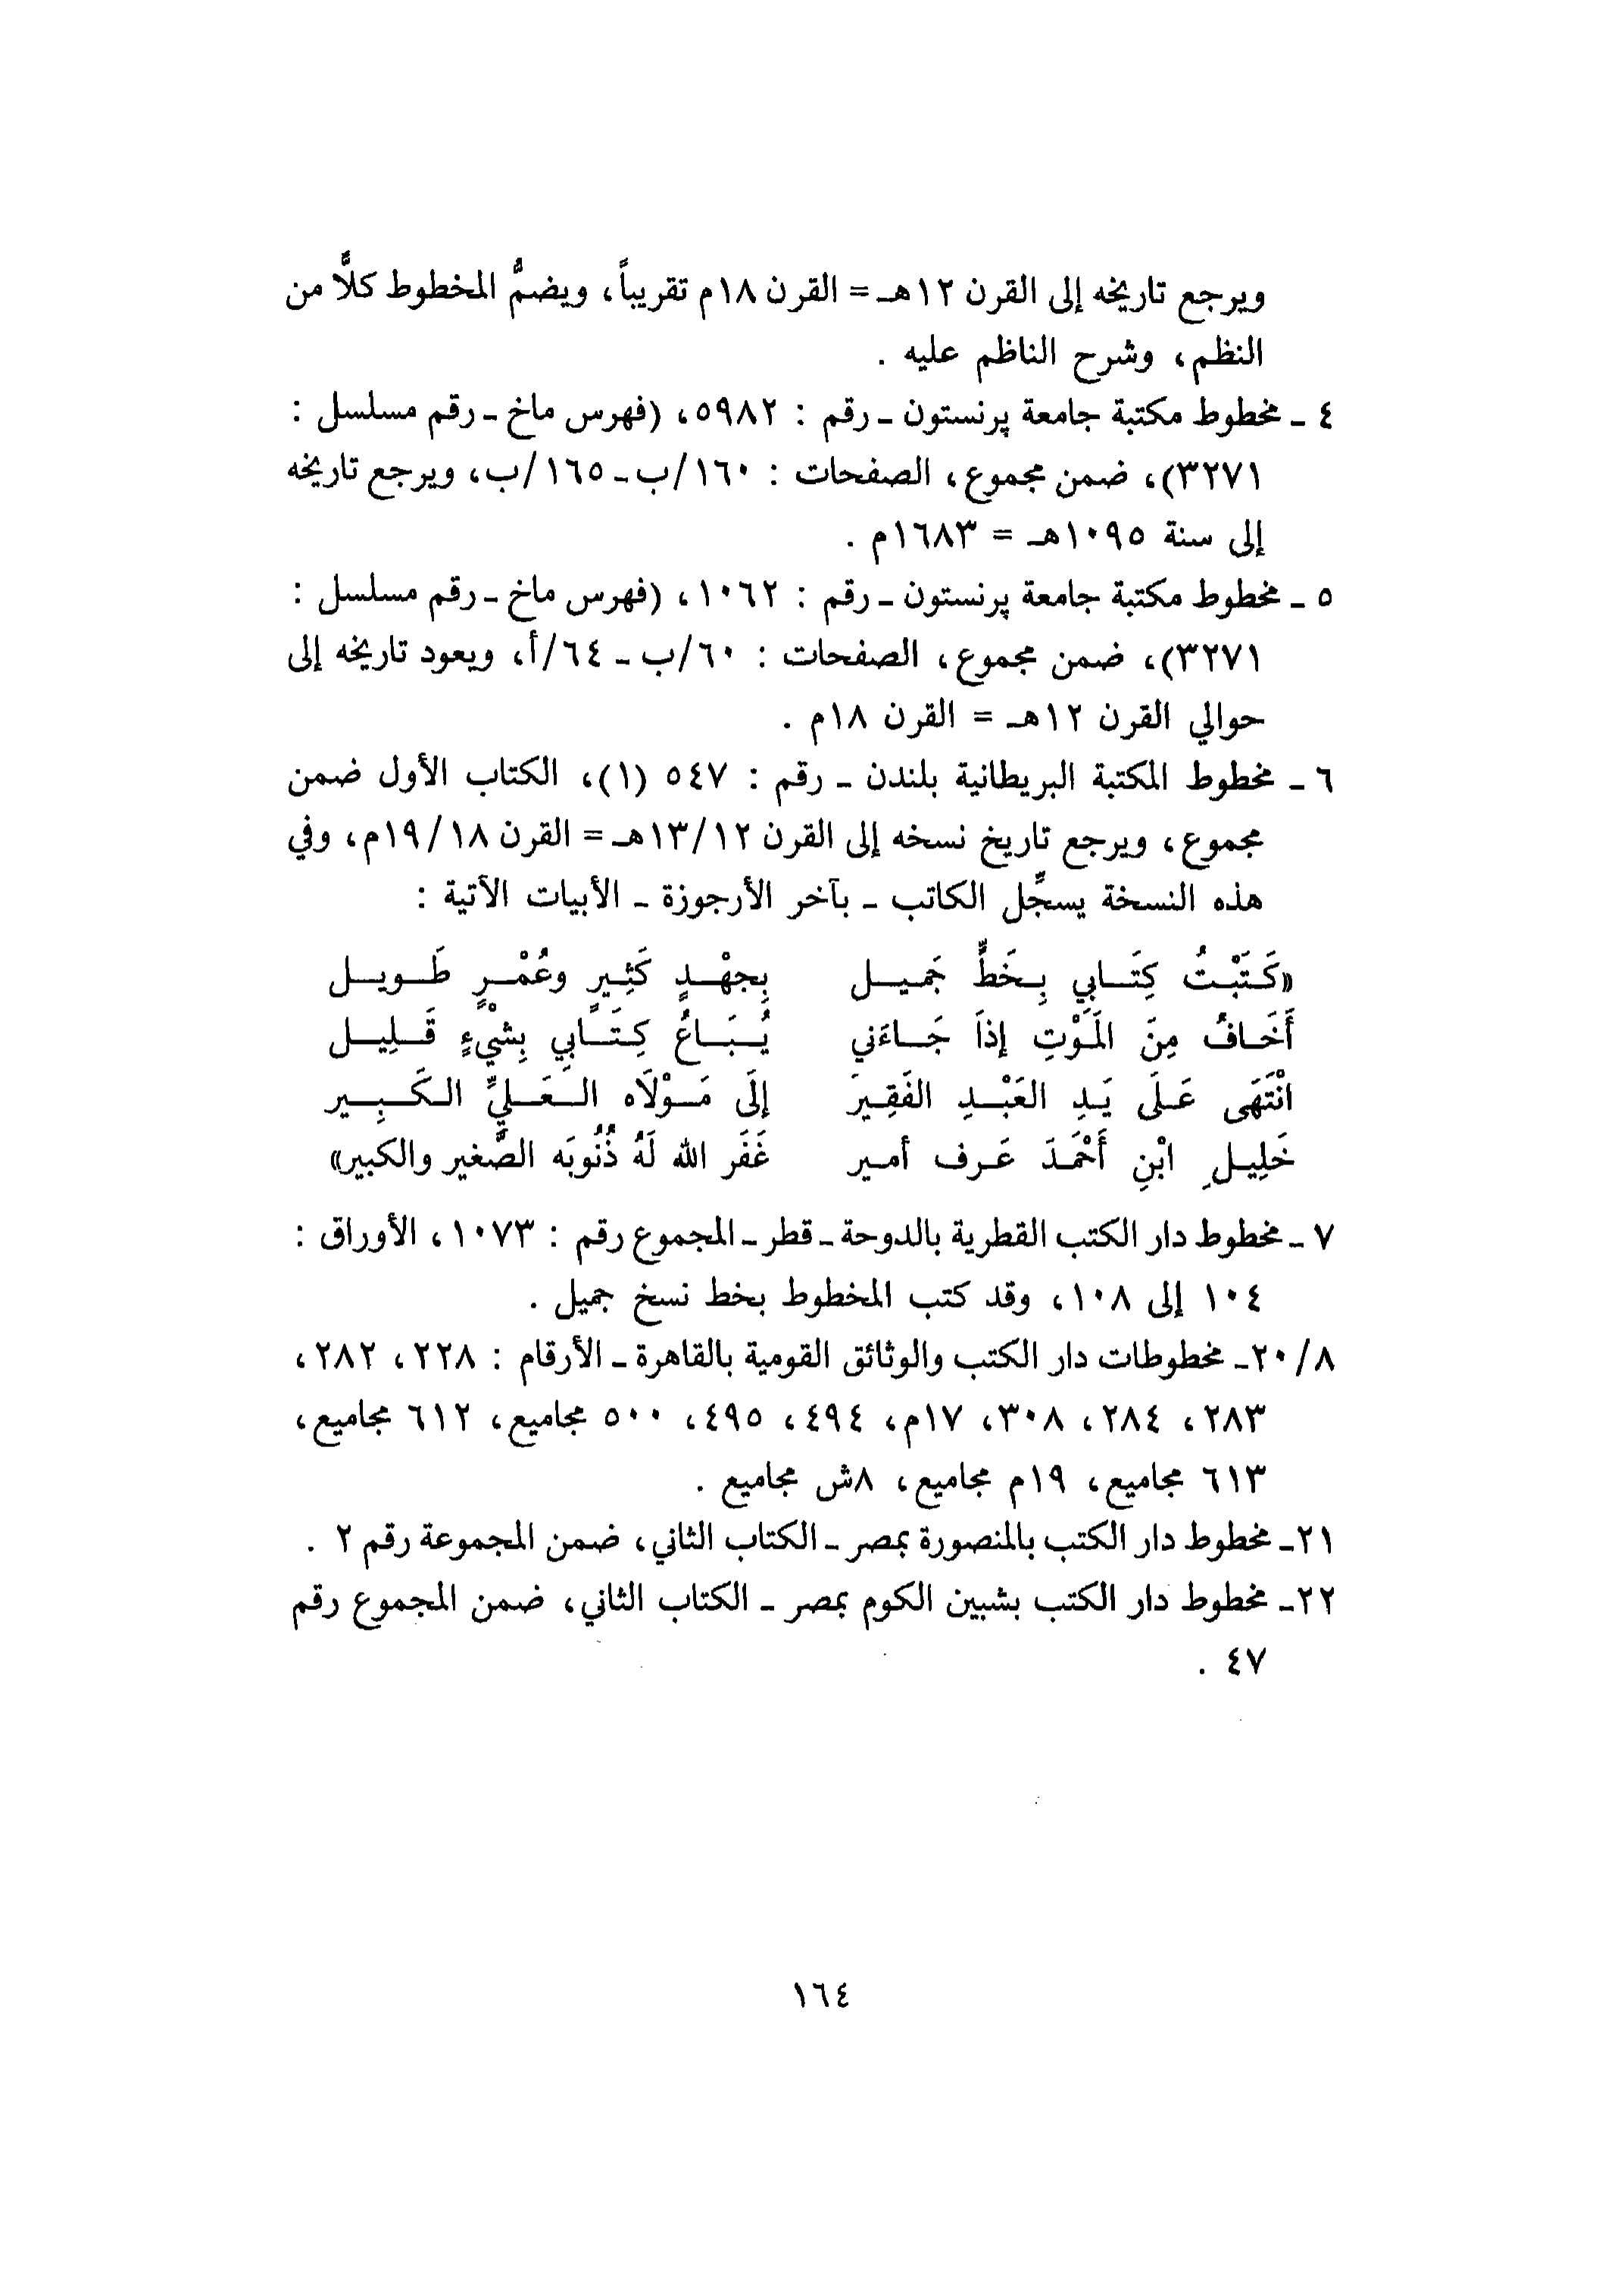 ويرجع تاريخه إلى القرن ١٢هـ = القرن ١٨م تقريباً، ويضمُّ المخطوط كلاًّ من
النظم، وشرح الناظم عليه .
٤ ـ مخطوط مكتبة جامعة پرنستون ـ رقم : ٥٩٨٢، (فهرس ماخ ـ رقم مسلسل :
٣٢٧١)، ضمن مجموع، الصفحات : ١٦٠/ب ـ ١٦٥/ب، ويرجع تاريخه
إلى سنة ١٠٩٥هـ = ١٦٨٣م .
٥ ـ مخطوط مكتبة جامعة پرنستون ـ رقم : ١٠٦٢، (فهرس ماخ ـ رقم مسلسل :
٣٢٧١)، ضمن مجموع، الصفحات : ٦٠/ب ـ ٦٤/أ، ويعود تاريخه إلى
حوالي القرن ١٢هـ = القرن ١٨م .
٦ ـ مخطوط المكتبة البريطانية بلندن ـ رقم : ٥٤٧ (١)، الكتاب الأول ضمن
مجموع، ويرجع تاريخ نسخه إلى القرن ١٣/١٢هـ = القرن ١٩/١٨م، وفي
هذه النسخة يسجِّل الكاتب ـ بآخر الأرجوزة ـ الأبيات الآتية :
«كَتَبْتُ كِتَابِي بِخَطٍّ جَميل بِجهْدٍ كَثِيرٍ وعُمْرٍ طَويل
أَخَافُ مِنَ المَوْتِ إذاَ جَاءَني يُبَاعُ كِتَابِي بِشيْءٍ قَلِيل
انْتَهَى عَلَى يَدِ العَبْدِ الفَقِيرَ إلَى مَوْلَاه العَليِّ الكَبِير
خَلِيلِ ابْنِ أَحْمَدَ عَرف أمير غَفَر الله لَهُ ذُنُوبَه الصَّغير والكبير»
٧ ـ مخطوط دار الكتب القطرية بالدوحة ـ قطر ـ المجموع رقم : ١٠٧٣، الأوراق :
١٠٤ إلى ١٠٨، وقد كتب المخطوط بخط نسخ جميل .
٢٠/٨ـ مخطوطات دار الكتب والوثائق القومية بالقاهرة ـ الأرقام : ٢٢٨، ٢٨٢،
٢٨٣، ٢٨٤، ٣٠٨، ١٧م، ٤٩٤، ٤٩٥، ٥٠٠ مجاميع، ٦١٢ مجاميع،
٦١٣ مجاميع، ١٩م مجاميع، ٨ش مجاميع .
٢١ـ مخطوط دار الكتب بالمنصورة بمصر ـ الكتاب الثاني، ضمن المجموعة رقم ٢ .
٢٢ـ مخطوط دار الكتب بشبين الكوم بمصر ـ الكتاب الثاني، ضمن المجموع رقم
٤٧ .
١٦٤